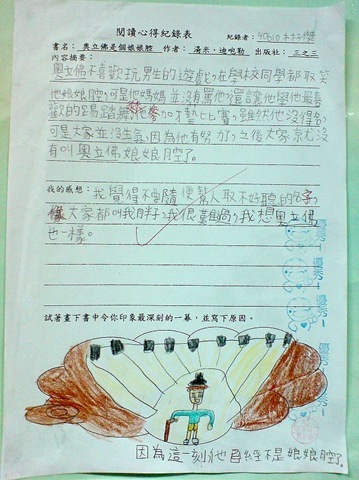 閱讀心得紀錄表
紀錄者：40610 林
書名：奧立佛是個娘娘腔 作者：湯米．迪咆勒 出版社：三之三
內容摘要：
奧立佛不喜歡玩男生的遊戲，在學校同學都取笑
他娘娘腔，可是他媽媽並沒有罵他，還讓他學他最喜
歡的踢踏舞，他參加才藝比賽，雖然他沒得名，
可是大家並沒生氣，因為他有努力了，之後大家就沒
有叫奧立佛娘娘腔了。
我的感想：我覺得不要隨便幫人取不好聽的名字，
像大家都叫我胖子，我很難過，我想奧立佛
也一樣。
優秀！
優秀！
優秀！
試著畫下書中令你印象最深刻的一幕，並寫下原因。
因為這一刻他已經不是娘娘腔了。